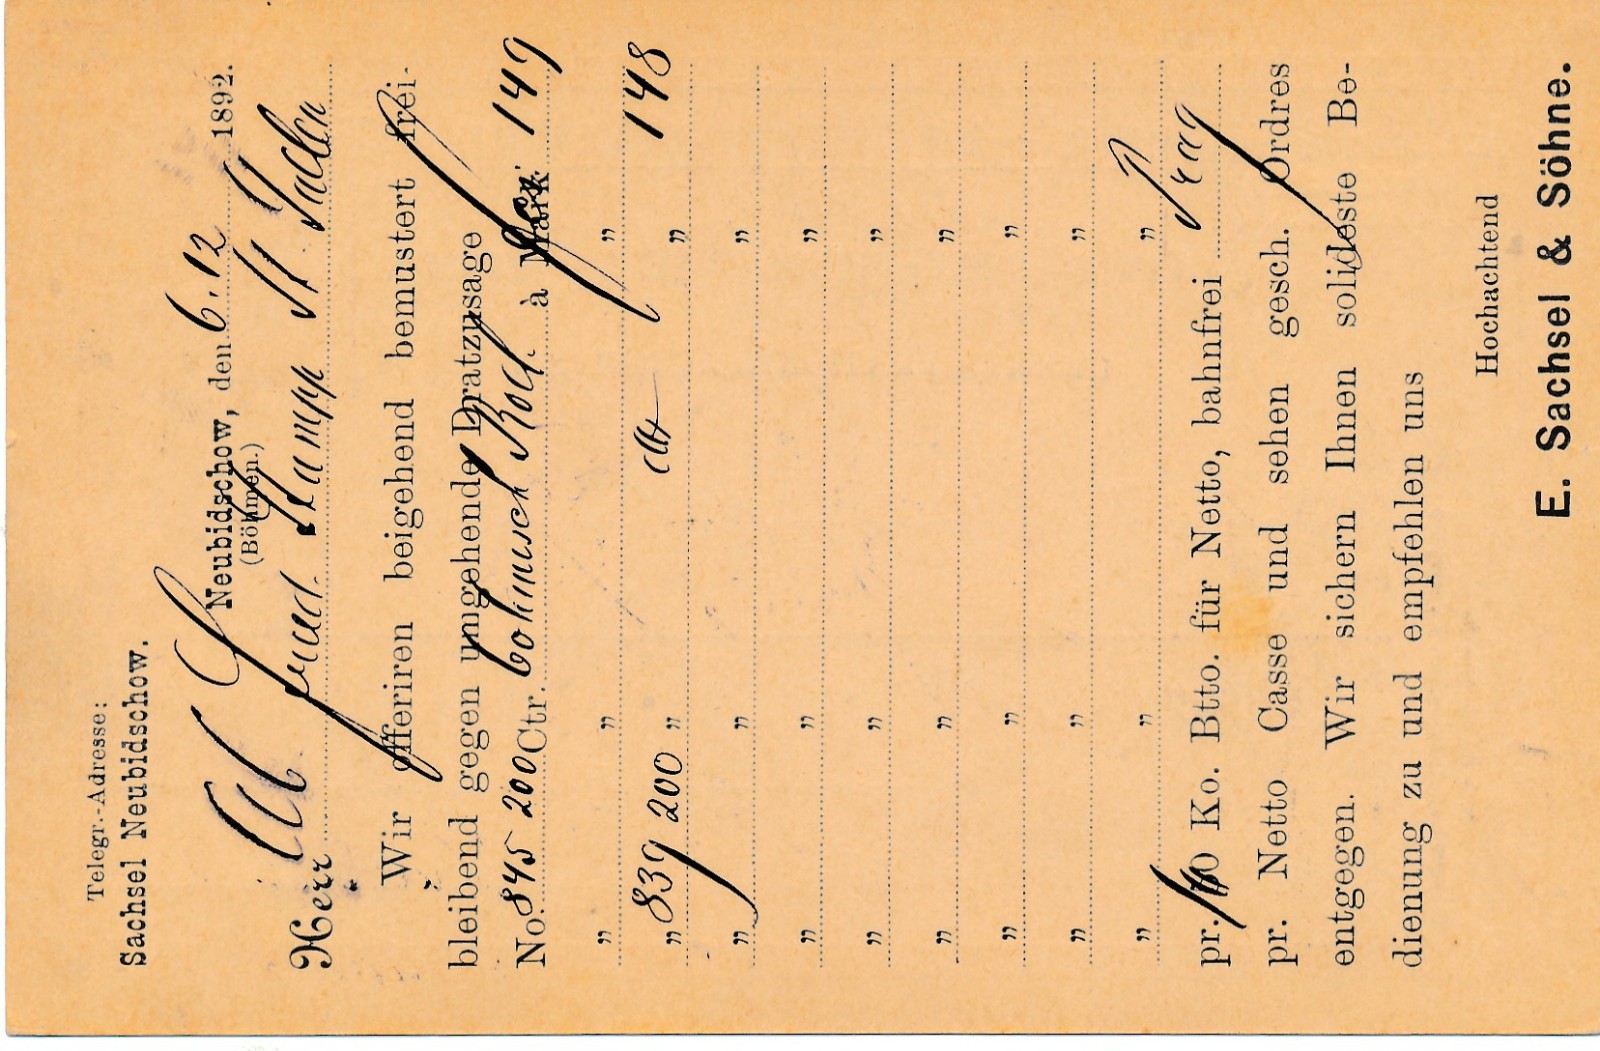 Telegr.-Adresse:
Sachsel Neubidschow.
Neubidschow, den 6.12 1892.
(Böhmen.)
Herr
Wir offeriren beigehend bemustert frei-
bleibend gegen umgehende Dratzusage
No. 845 200 Ctr. böhmisch Roth. à Mark 149
" " "
" 839 200 " " 148
" " "
" " "
" " "
" " "
" " "
" " "
" " "
pr. Ko. Btto. für Netto, bahnfrei Prag
pr. Netto Casse und sehen gesch. Ordres
entgegen. Wir sichern Ihnen solideste Be-
dienung zu und empfehlen uns
Hochachtend
E. Sachsel & Söhne.